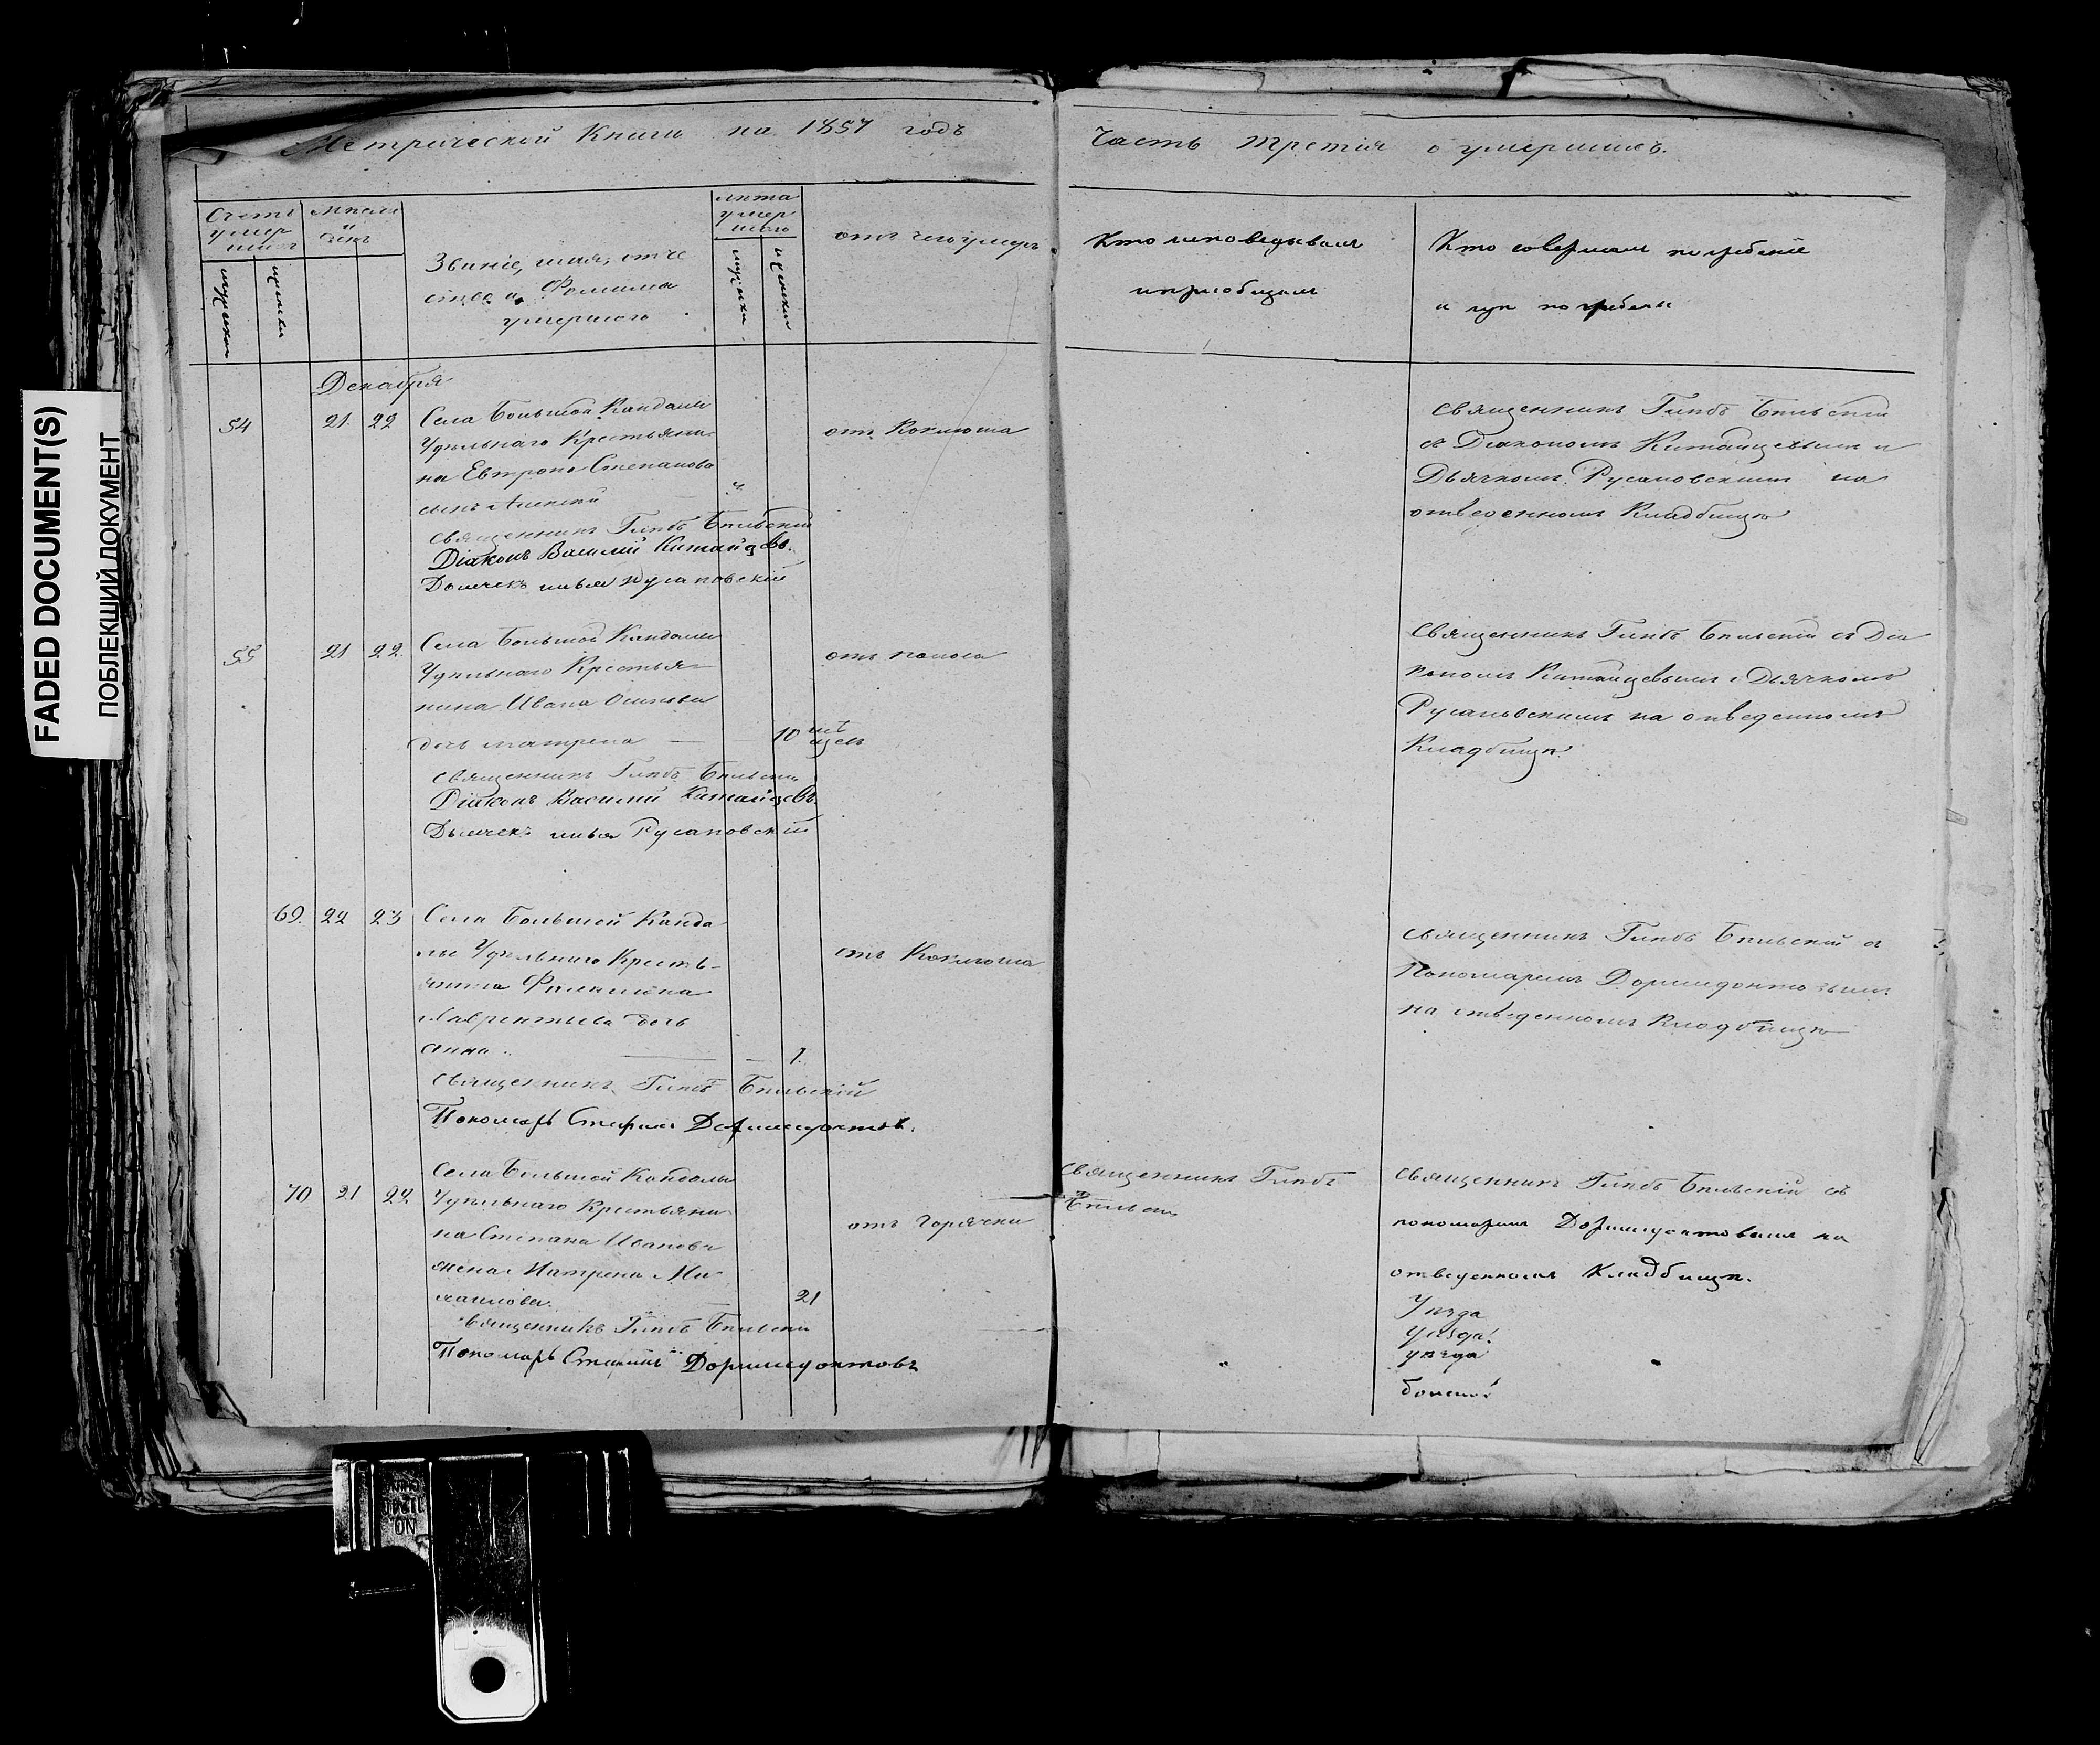 FADED DOCUMENT(S)
ПОБЛЕКШИЙ ДОКУМЕНТ
Метрической Книги на 1857 годъ
Часть третія о умершихъ.
Счетъ умер шихъ
мужеска
женска
Мѣсяцъ и день
Званіе, имя, отче
ство и Фамилія
умершаго
лѣта умер шаго
мужеска
женска
отъ чего умеръ
Кто исповедывалъ
и пріобщалъ
Кто совершалъ погребеніе
и гдѣ погребены
Декабря
54 21. 22
Села Большой Кандалы
Удѣльнаго Крестьяни
на Евтропа Степанова
сынъ Алексей
отъ Коклюша
Священникъ Глѣбъ Бѣльскій
Діаконъ Василій Китайцевъ.
Дьячекъ Илья Русановскій
Священникъ Глѣбъ Бѣльскій
съ Діакономъ Китайцевымъ и
Дьячкомъ Русановскимъ на
отведенномъ Кладбищѣ
55 21 22.
Села Большой Кандалы
Удѣльнаго Крестья
нина Ивана Осипова
дочь Матрена 10 мѣ сяцъ
отъ поноса
Священникъ Глѣбъ Бѣльскій
Діаконъ Василій Китайцевъ.
Дьячекъ Илья Русановскій
Священникъ Глѣбъ Бѣльскій съ Діа
кономъ Китайцевымъ и Дьячкомъ
Русановскимъ на отведенномъ
Кладбищѣ.
69. 22 23
Села Большой Канда
лы Удѣльнаго Кресть-
янина Филимона
Лаврентьева дочь
Анна. 1.
отъ Коклюша
Священникъ Глѣбъ Бѣльскій
Пономарь Стефанъ Доримедонтовъ.
Священникъ Глѣбъ Бѣльскій съ
Пономаремъ Доримедонтовымъ
на отведенномъ Кладбищѣ
70 21 22.
Села Большой Кандалы
Удѣльнаго Крестьяни
на Степана Иванова
жена Матрена Ми
хаилова. 21
отъ Горячки
Священникъ Глѣбъ Бѣльскій
Пономарь Стефанъ Доримедонтовъ
Священникъ Глѣбъ
Бѣльскій
Священникъ Глѣбъ Бѣльскій съ
пономаремъ Доримедонтовымъ на
отведенномъ Кладбищѣ.
Уѣзда
Уѣзда.
уѣзда